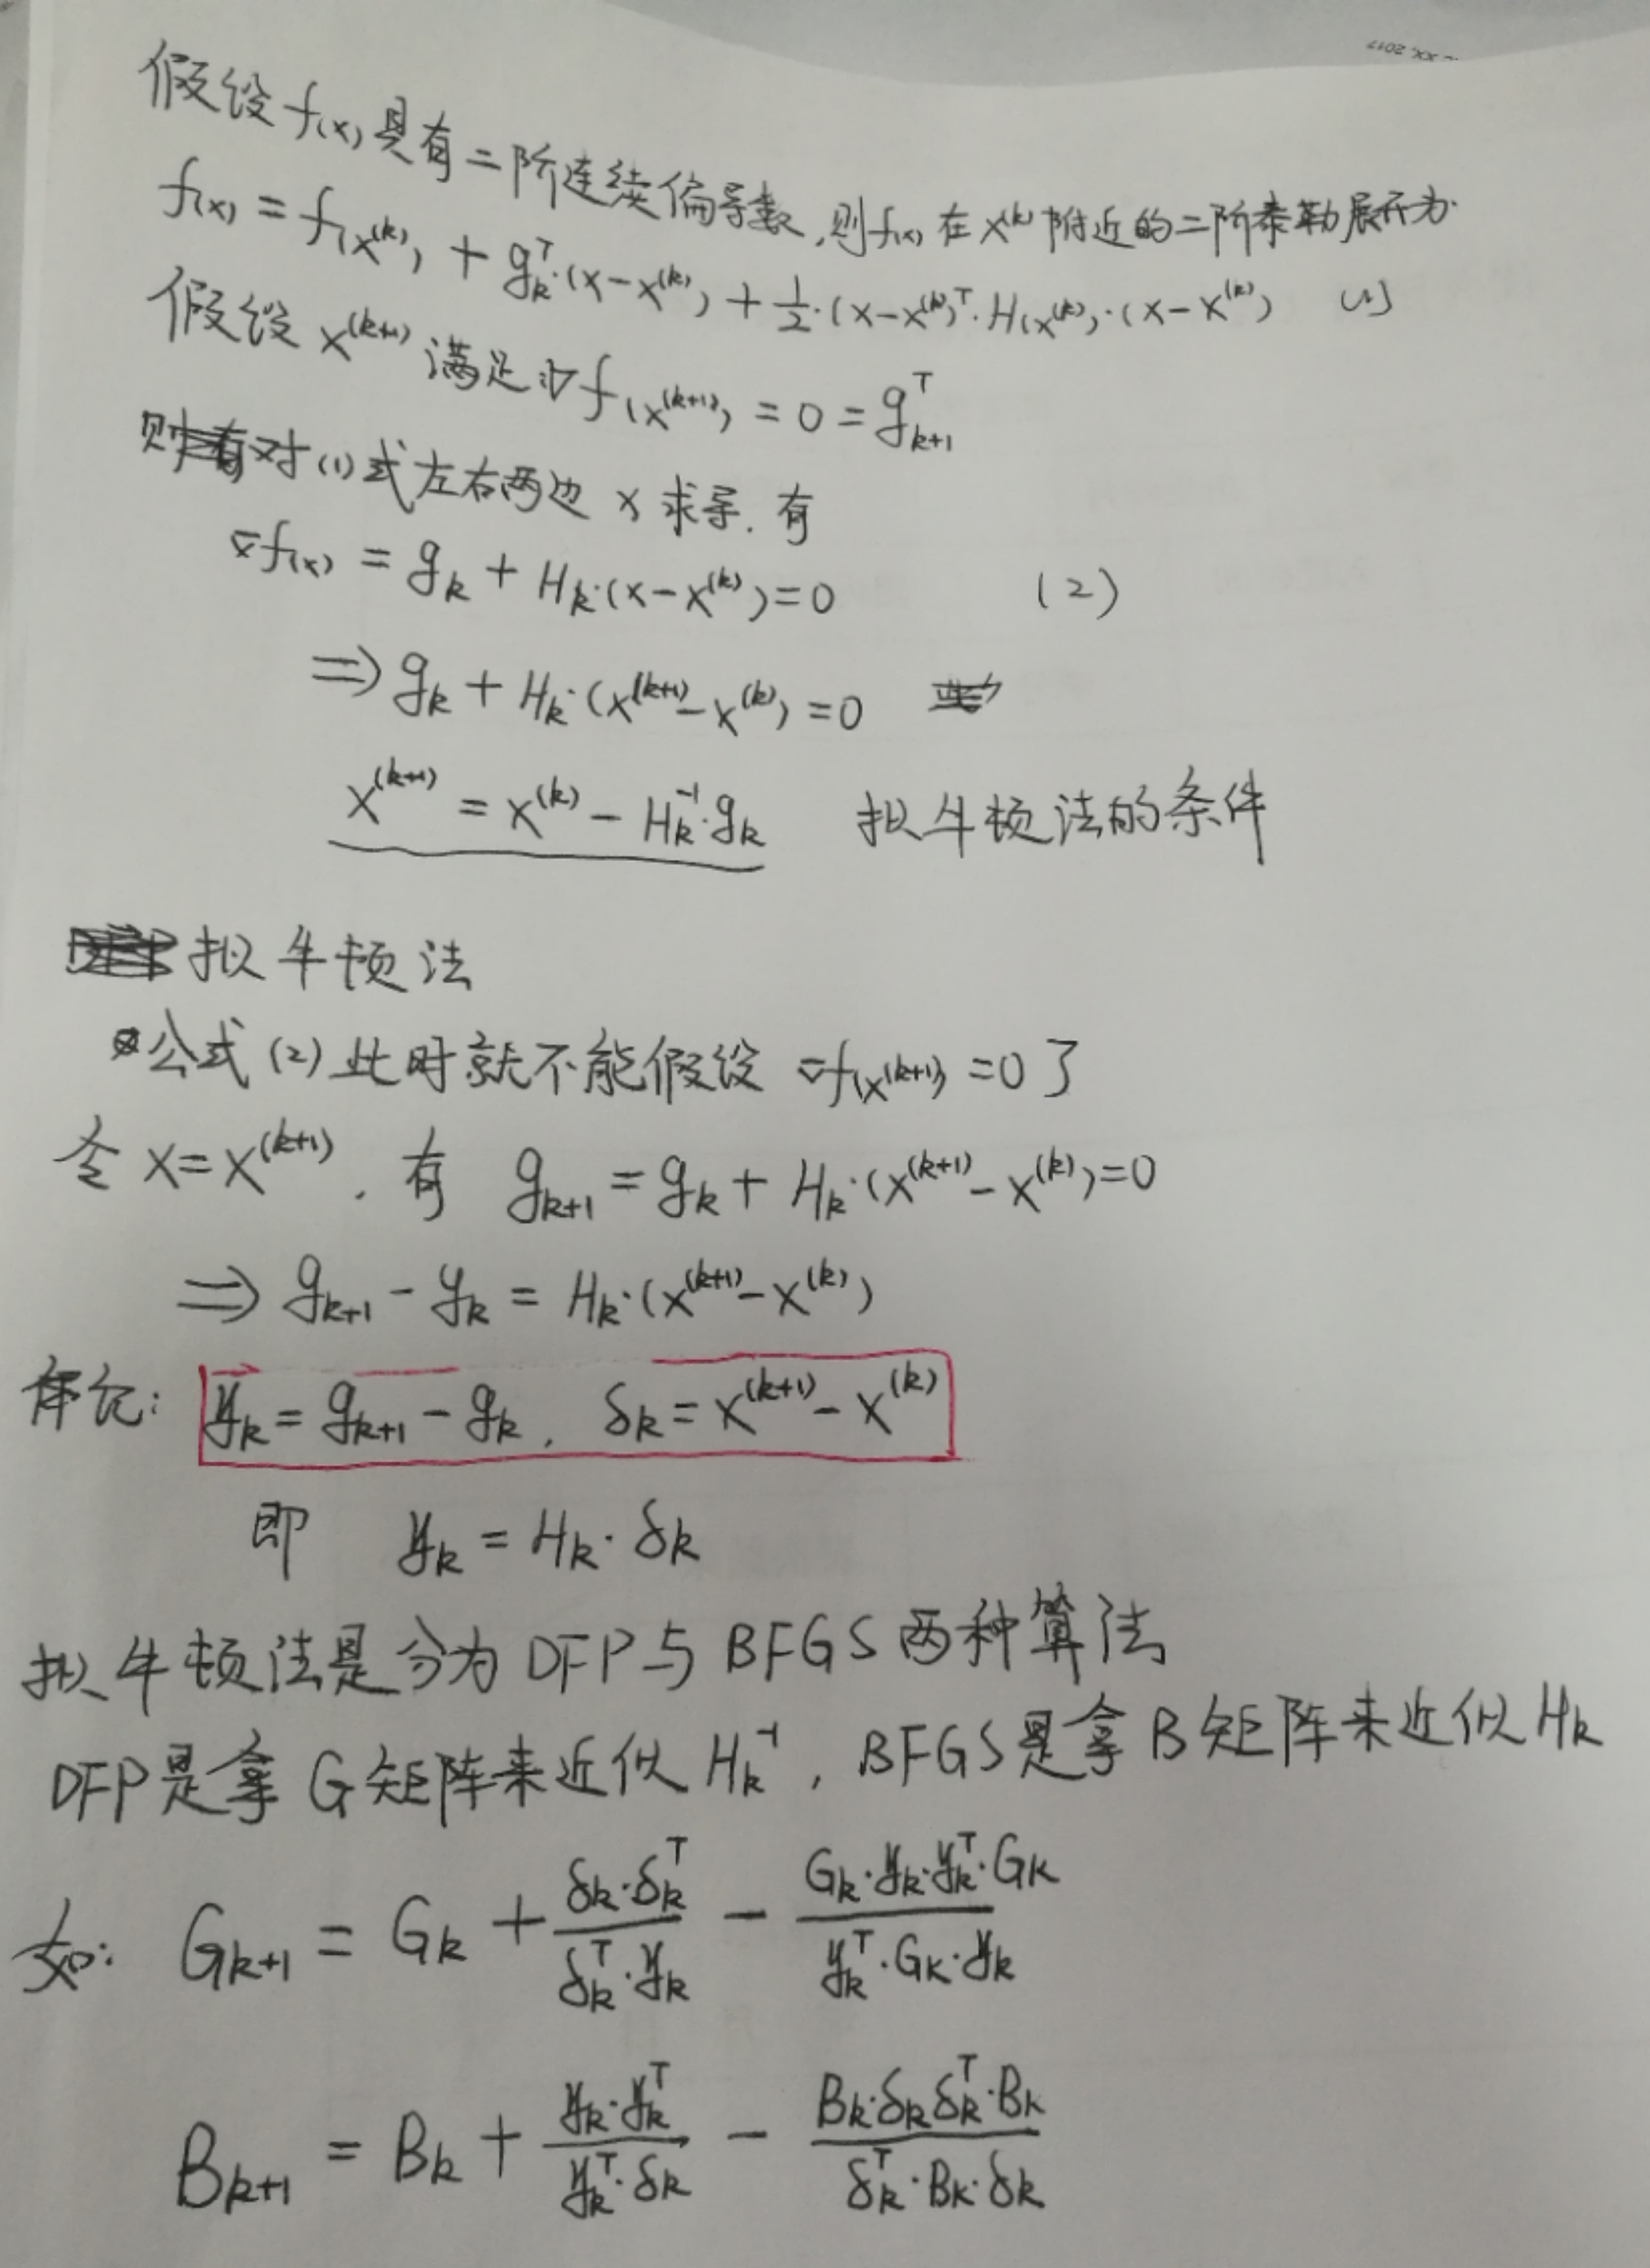 XX, 2017
假设 f(x) 具有二阶连续偏导数,则f(x) 在 x^(k) 附近的二阶泰勒展开为
f(x) = f(x^(k)) + g_k^T·(x-x^(k)) + 1/2·(x-x^(k))^T·H(x^(k))·(x-x^(k)) (1)
假设 x^(k+1) 满足 ∇f(x^(k+1)) = 0 = g_{k+1}^T
则对(1)式左右两边 x 求导,有
∇f(x) = g_k + H_k·(x-x^(k)) = 0 (2)
⇒ g_k + H_k·(x^(k+1)-x^(k)) = 0
x^(k+1) = x^(k) - H_k^-1·g_k 拟牛顿法的条件
拟牛顿法
公式(2)此时就不能假设 ∇f(x^(k+1)) = 0 了
令 x = x^(k+1), 有 g_{k+1} = g_k + H_k·(x^(k+1)-x^(k)) = 0
⇒ g_{k+1} - y_k = H_k·(x^(k+1)-x^(k))
记: y_k = g_{k+1} - g_k, δ_k = x^(k+1) - x^(k)
即 y_k = H_k·δ_k
拟牛顿法是分为 DFP与 BFGS 两种算法
DFP是拿 G 矩阵来近似 H_k^-1, BFGS是拿 B 矩阵来近似 H_k
如: G_{k+1} = G_k + (δ_k·δ_k^T)/(δ_k^T·y_k) - (G_k·y_k·y_k^T·G_k)/(y_k^T·G_k·y_k)
B_{k+1} = B_k + (y_k·y_k^T)/(y_k^T·δ_k) - (B_k·δ_kδ_k^T·B_k)/(δ_k^T·B_k·δ_k)